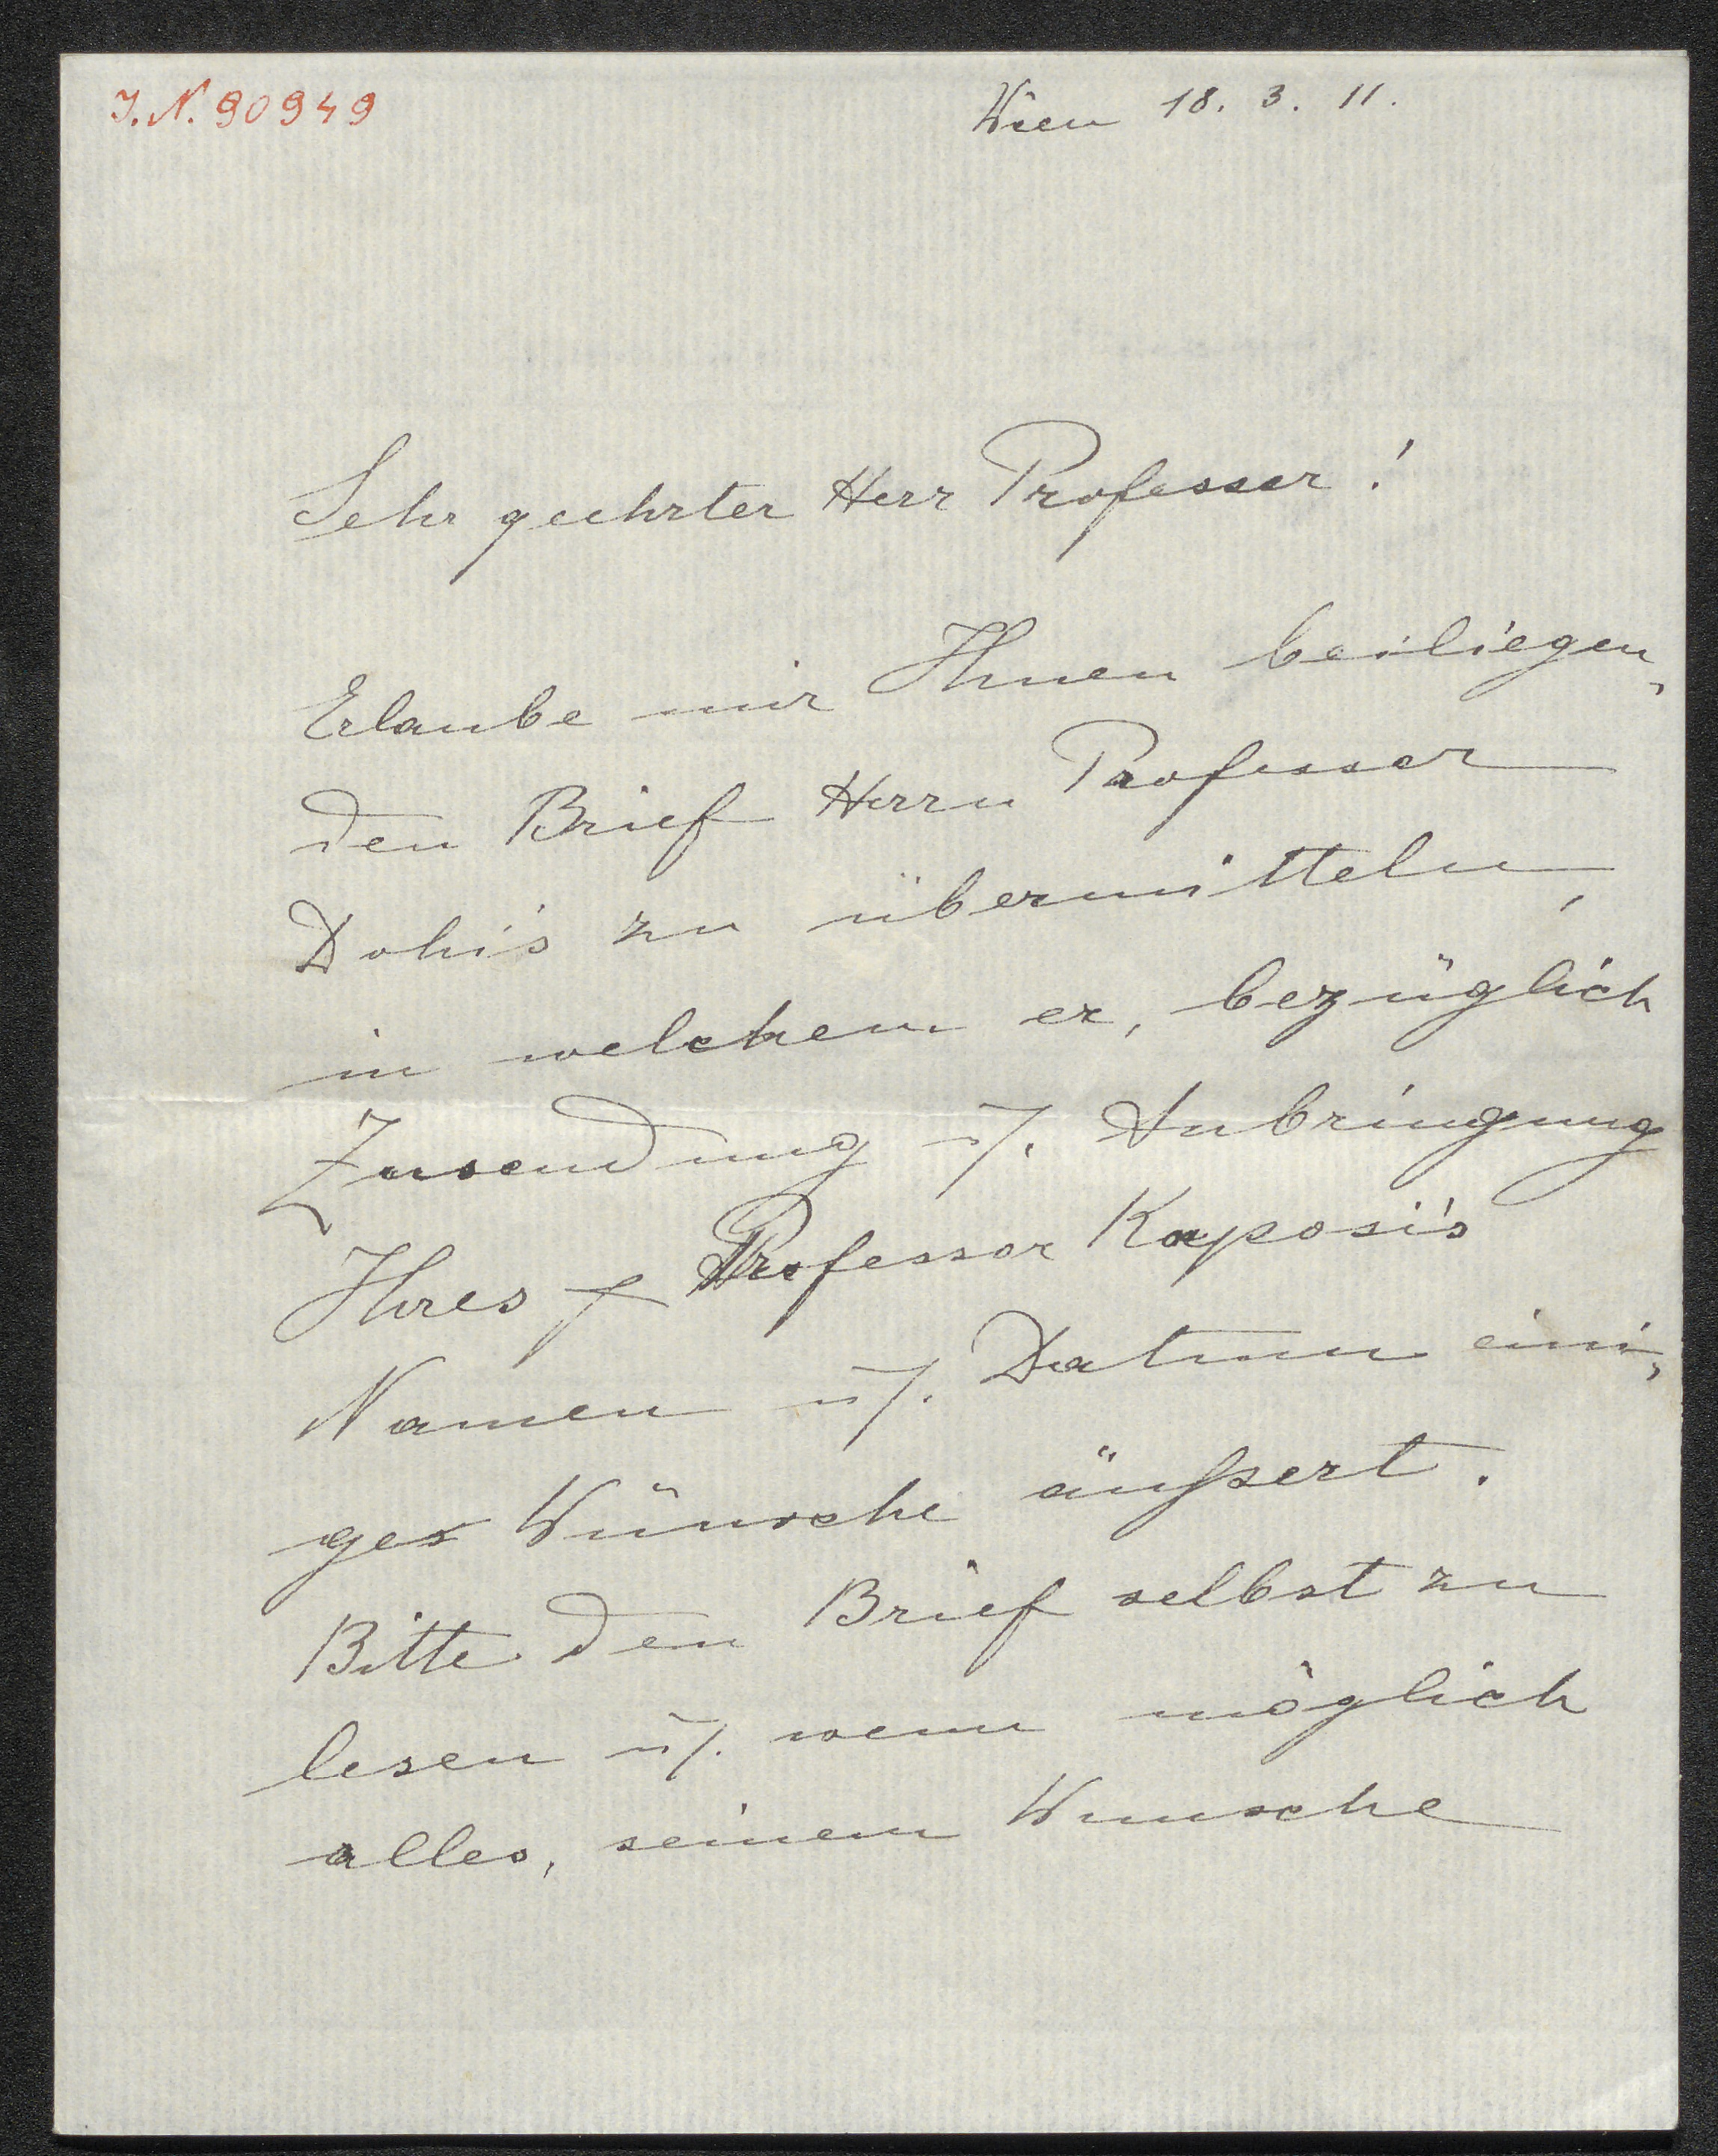 J.N. 90949
Wien 18. 3. 11.
Sehr geehrter Herr Professor!
Erlaube mir Ihnen beiliegen,
den Brief Herrn Professor
Dohi's zu übermitteln,
in welchem er, bezüglich
Zusendung u. Anbringung
Ihres x Professor Kaposi's
Namen u. Datum eini,
ges Wünsche äußert.
Bitte den Brief selbst zu
lesen u. wenn möglich
alles, seinem Wunsche